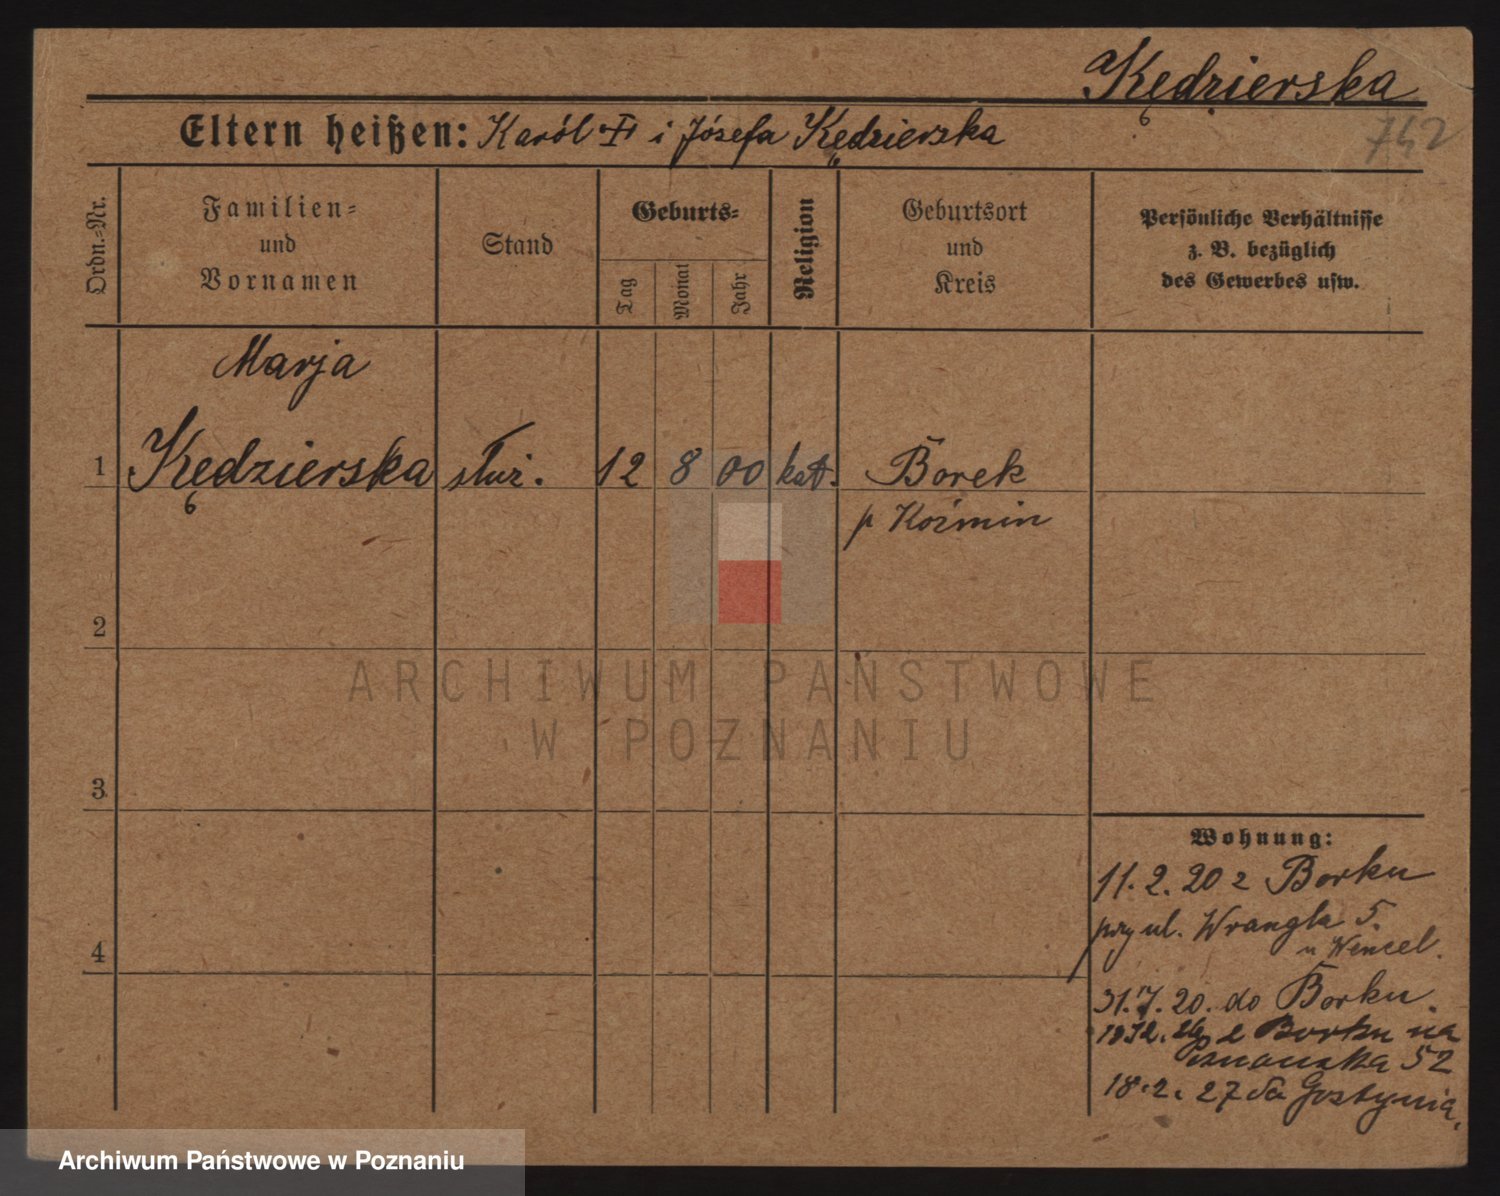 Kędzierska
742
Eltern heißen: Karól i Józefa Kędzierska
Ordn.-Nr.
Familien-
und
Vornamen
Stand
Geburts-
Tag
Monat
Jahr
Religion
Geburtsort
und
Kreis
Persönliche Verhältnisse
z. B. bezüglich
des Gewerbes usw.
Marja
1 Kędzierska służ. 12 8 00 kat. Borek
p Koźmin
2
ARCHIWUM PAŃSTWOWE
W POZNANIU
3
Wohnung:
11. 2. 20 z Borku
przy ul. Wrangla 5.
u Wencel.
4
31. 7. 20. do Borku.
z Borku na
Poznańska 52
18. 2. 27 do Gostynia.
Archiwum Państwowe w Poznaniu